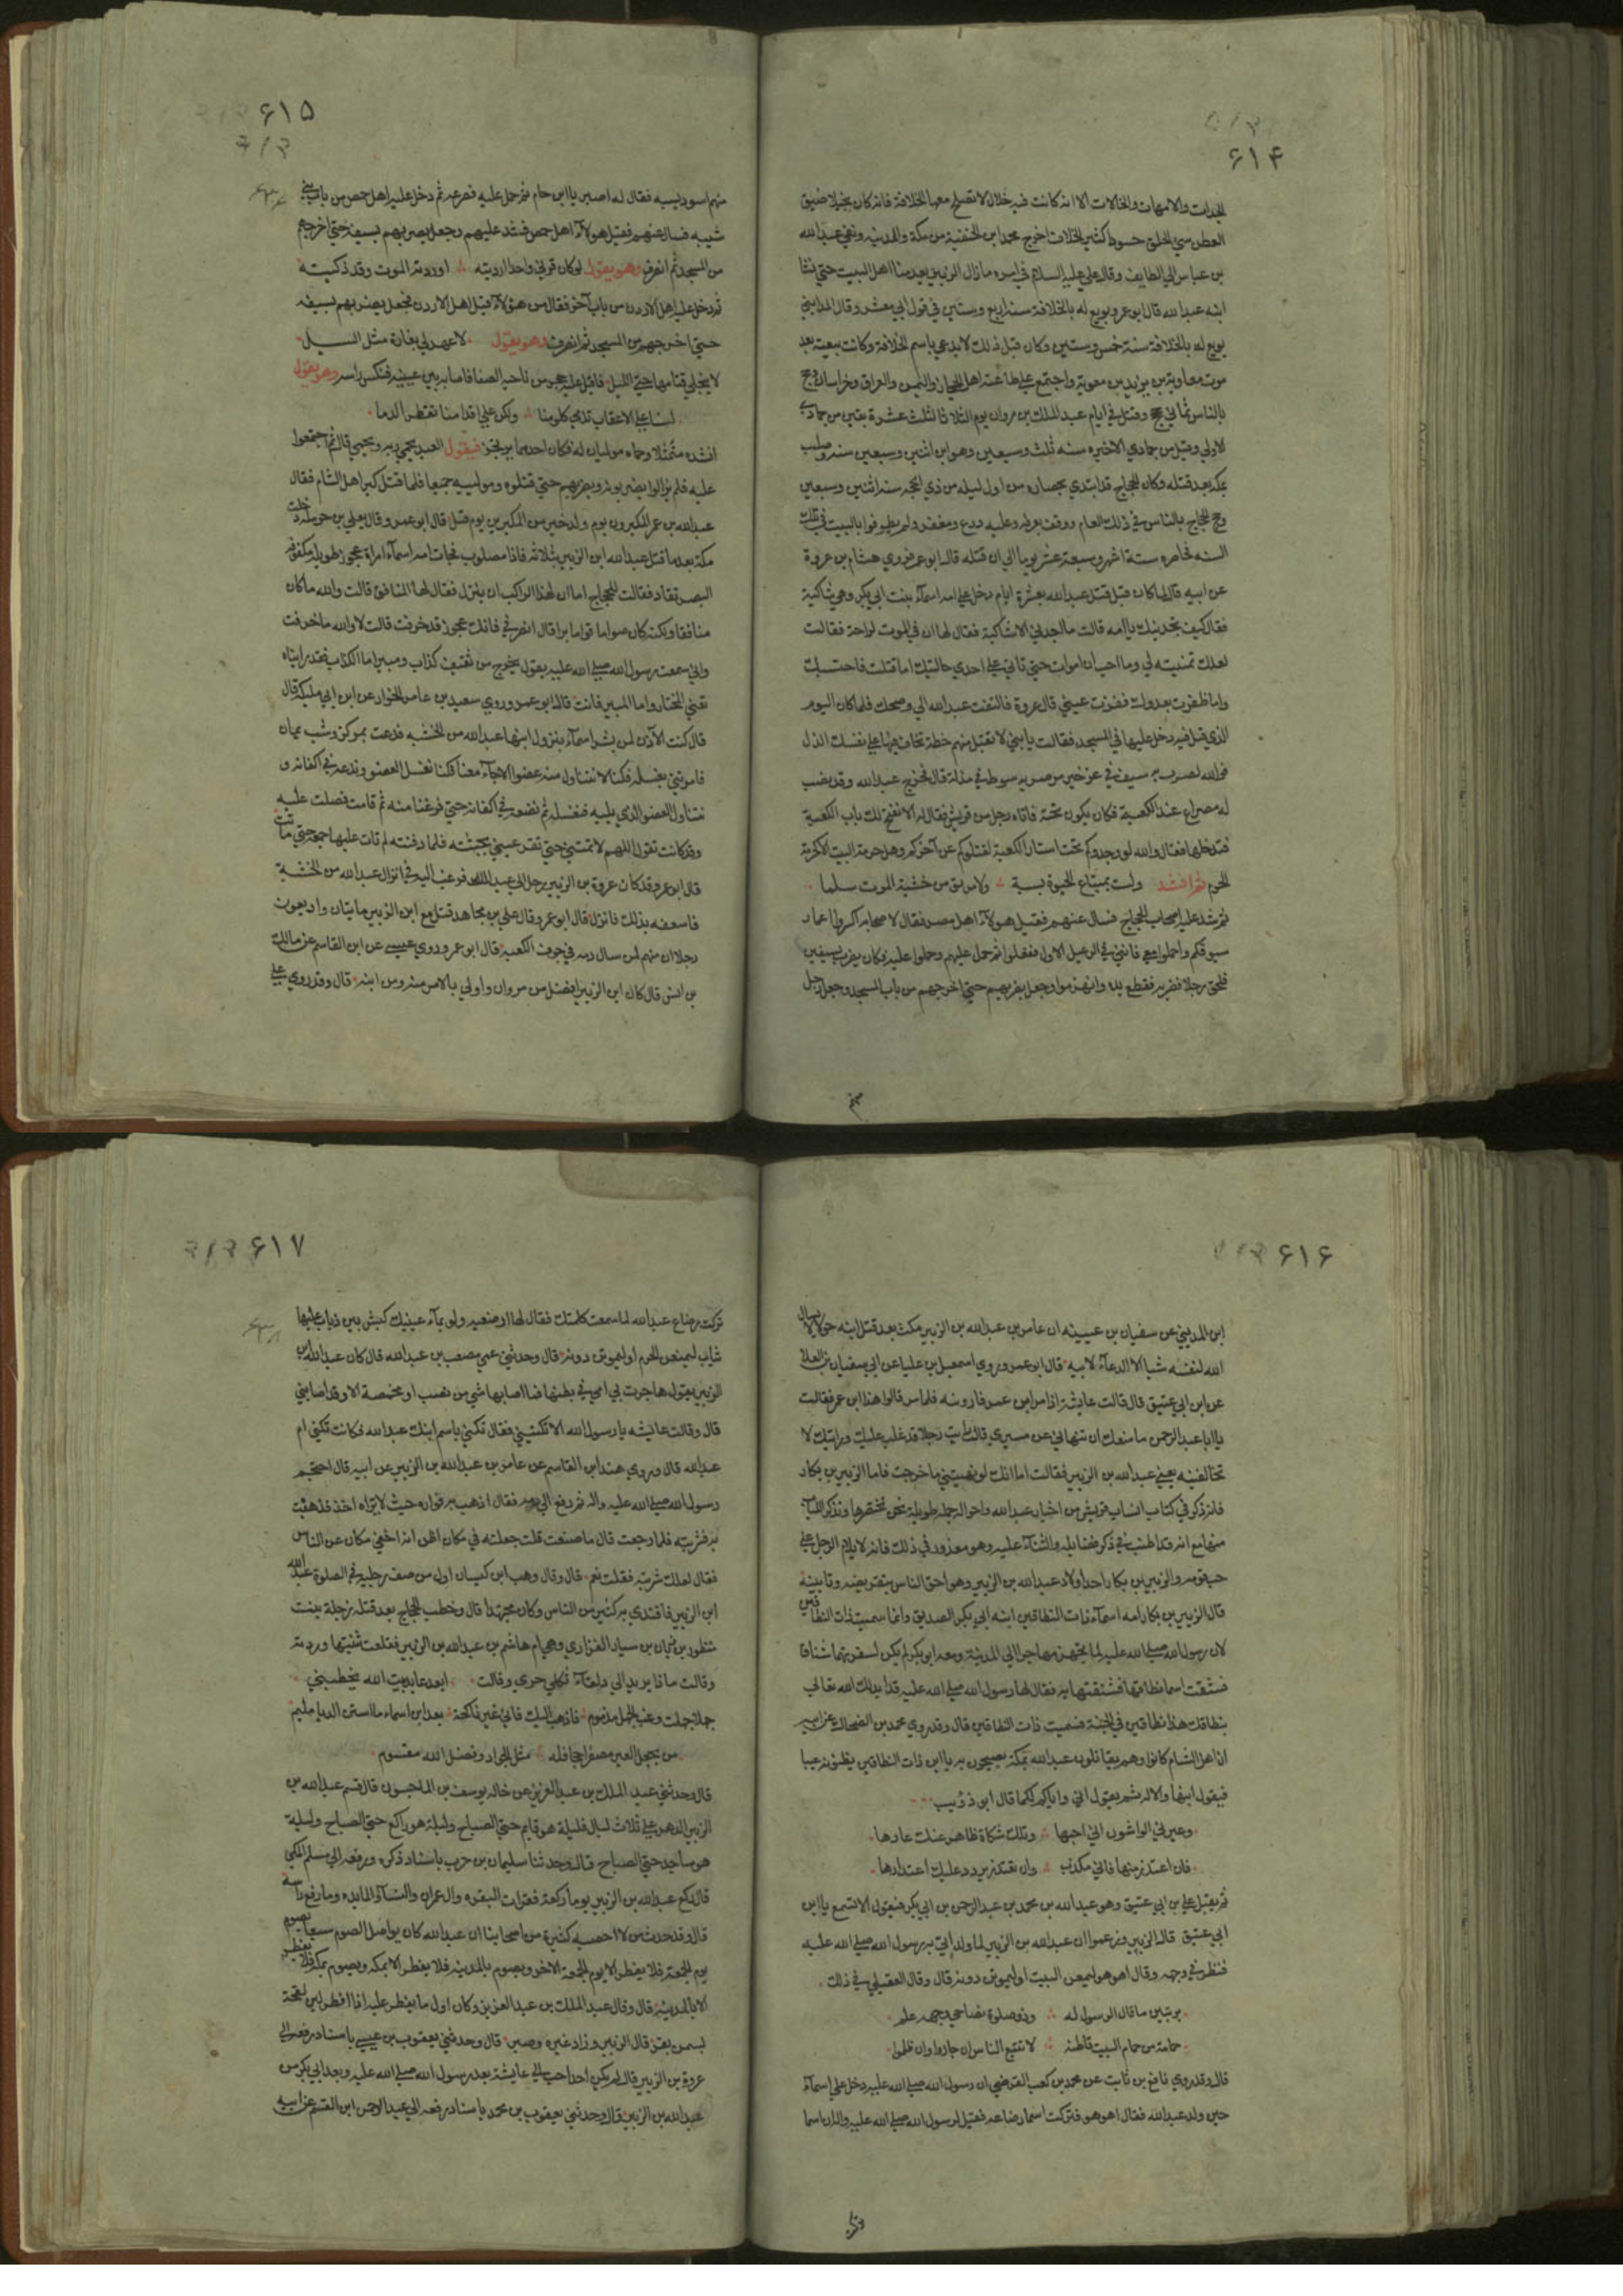 ۶۱۴
الجدات والامهات والخالات الا انه كانت فيه خلال لا تصلح معها الخلافة فانه كان بخيلا ضيق
العطن سيئ الخلق حسودا كثير الخلاف اخرج محمد ابن الحنفية من مكة والمدينة ونفي عبد الله
بن عباس الي الطايف وقال علي عليه السلام في امره ما زال الزبير يعد منا اهل البيت حتي نشا
ابنه عبد الله قال ابو عمر وبويع له بالخلافة سنة اربع وستين في قول ابي معشر وقال المدايني
بويع له بالخلافة سنة خمس وستين وكان قبل ذلك لا يدعي باسم الخلافة وكانت بيعته بعد
موت معاوية بن يزيد بن معوية واجتمع علي طاعته اهل الحجاز واليمن والعراق وخراسان وحج
بالناس ثماني حجج وقتل في ايام عبد الملك بن مروان يوم الثلاثا لثلث عشرة بقين من جمادي
الاولي وقيل من جمادي الاخيره سنه ثلث وسبعين وهو ابن اثنين وسبعين سنه وصلب
بمكة بعد قتله وكان الحجاج قد ابتدي بحصاره من اول ليله من ذي الحجه سنه اثنتين وسبعين
وحج الحجاج بالناس في ذلك العام ووقف بعرفه وعليه درع ومغفر ولم يطوفوا بالبيت في تلك
السنه فحاصره ستة اشهر وسبعة عشر يوما الي ان قتله قال ابو عمر فروي هشام بن عروة
عن ابيه قال لما كان قبل قتل عبد الله بعشرة ايام دخل علي امه اسماء بنت ابي بكر وهي شاكية
فقال كيف تجدينك يا امه قالت ما اجدني الا شاكية فقال لها ان في الموت لراحة فقالت
لعلك تمنيته لي وما احب ان اموت حتي تاتي علي احدي حالتيك اما قتلت فاحتسبك
واما ظفرت بعدوك فقرت عيني قال عروة فالتفت عبد الله الي وضحك فلما كان اليوم
الذي قتل فيه دخل عليها في المسجد فقالت يا بني لا تقبل منهم خطة تخاف فيها علي نفسك الذل
فوالله لضربة سيف في عز خير من ضربة سوط في مذلة قال فخرج عبد الله وقد نصب
له مصراع عند الكعبة فكان يكون تحته فاتاه رجل من قريش فقال له الا نفتح لك باب الكعبة
فتدخلها فقال والله لو وجدوكم تحت استار الكعبة لقتلوكم عن آخركم وهل حرمة البيت الا كحرمة
الحرم ثم انشد ولست بمبتاع الحيوة بسبة ولا مرتق من خشية الموت سلما
ثم شد عليه اصحاب الحجاج فسال عنهم فقيل هولاء اهل مصر فقال لاصحابه اكسروا اغماد
سيوفكم واحملوا معي فانني في الرعيل الاول ففعلوا ثم حمل عليهم وحملوا عليه فكان يضرب بسيفين
فلحق رجلا فضربه فقطع يده وانهزموا وجعل يضربهم حتي اخرجهم من باب المسجد وجعل رجل
۶۱۵
منهم اسود يسبه فقال له اصبر يا ابن حام ثم حمل عليه فصرعه ثم دخل عليه اهل حمص من باب بني
شيبه فسال عنهم فقيل هولاء اهل حمص فشد عليهم وجعل يضربهم بسيفه حتي اخرجهم
من المسجد ثم انصرف وهو يقول لو كان قرني واحدا رديته اوردته الموت وقد ذكيته
ثم دخل عليه اهل الاردن من باب آخر فقال من هؤلاء قيل اهل الاردن فجعل يضربهم بسيفه
حتي اخرجهم من المسجد ثم انصرف وهو يقول لا عهد لي بغارة مثل السيل
لا ينجلي قتامها حتي الليل فاقبل عليه حجر من ناحيه الصفا فاصابه بين عينيه فنكس راسه وهو يقول
لسنا علي الاعقاب تدمي كلومنا ولكن علي اقدامنا تقطر الدما
انشده متمثلا وحماه موليان له فكان احدهما يرتجز فيقول العبد يحمي ربه ويحتمي قال ثم اجتمعوا
عليه فلم يزالوا يضربونه ويضربهم حتي قتلوه وموليه جميعا فلما قتل كبر اهل الشام فقال
عبد الله بن عمر المكبرون يوم ولد خير من المكبرين يوم قتل قال ابو عمر وقال يعلي بن حرمله دخلت
مكة بعد ما قتل عبد الله ابن الزبير بثلاثه فاذا مصلوب فجات امه اسماء امراة عجوز طويله مكفوفه
البصر تقاد فقالت للحجاج اما ان لهذا الراكب ان ينزل فقال لها المنافق قالت والله ما كان
منافقا ولكنه كان صواما قواما برا قال انصرفي فانك عجوز قد خرفت قالت لا والله ما خرفت
واني سمعت رسول الله صلي الله عليه يقول يخرج من ثقيف كذاب ومبير اما الكذاب فقد رايناه
تعني المختار واما المبير فانت قال ابو عمر وروي سعيد بن عامر الخزار عن ابن ابي مليكة قال
قال كنت الآذن لمن بشر اسماء بنزول ابنها عبد الله من الخشبه فدعت بمركن وشب يمان
فامرتني بغسله فكنا لا نتناول منه عضوا الا جاء معنا فكنا نغسل العضو وندعه في اكفانه و
نتناول العضو الذي يليه فنغسله ثم نضعه في اكفانه حتي فرغنا منه ثم قامت فصلت عليه
وقد كانت تقول اللهم لا تمتني حتي تقر عيني بجثته فلما دفنته لم تات عليها جمعة حتي ماتت
قال ابو عمر وقد كان عروة بن الزبير رحل الي عبد الملك فرغب اليه في انزال عبد الله من الخشبة
فاسعفه بذلك فانزل قال ابو عمر وقال علي بن مجاهد قتل مع ابن الزبير مايتان واربعون
رجلا ان منهم لمن سال دمه في جوف الكعبة قال ابو عمر وروي عيسي عن ابن القاسم عن مالك
بن انس قال كان ابن الزبير افضل من مروان واولي بالامر منه ومن ابنه قال وقد روي علي
۶۱۶
ابن المديني عن سفيان بن عيينه ان عامر بن عبد الله بن الزبير مكث بعد قتل ابيه حولا لا يسال
الله لنفسه شيا الا الدعاء لابيه قال ابو عمر وروي اسمعيل بن عليا عن ابي سفيان بن العلا
عن ابن ابي عتيق قال قالت عايشة اذا مر ابن عمر فارونيه فلما مر قالوا هذا ابن عمر فقالت
يا ابا عبد الرحمن ما منعك ان تنهاني عن مسيري قال رايت رجلا قد غلب عليك ورايتك لا
تخالفينه يعني عبد الله بن الزبير فقالت اما انك لو نهيتني ما خرجت فاما الزبير بن بكار
فانه ذكر في كتاب انساب قريش من اخبار عبد الله واحواله جمله طويله نحن نختصرها ونذكر اللباب
منها مع انه قد اطنب في ذكر فضايله والثناء عليه وهو معذور في ذلك فانه لا يلام الرجل علي
حب قومه والزبير بن بكار احد اولاد عبد الله بن الزبير وهو احق الناس بتقريضه وتابينه
قال الزبير بن بكار امه اسماء ذات النطاقين ابنه ابي بكر الصديق وانما سميت ذات النطاقين
لان رسول الله صلي الله عليه لما تجهز مهاجرا الي المدينة ومعه ابو بكر لم يكن لسفرتهما شناق
فشقت اسما نطاقها فشنقتها به فقال لها رسول الله صلي الله عليه قد ابدلك الله تعالي
بنطاقك هذا نطاقين في الجنة فسميت ذات النطاقين قال وقد روي محمد بن الضحاك عن ابيه
ان اهل الشام كانوا وهم يقاتلون عبد الله بمكة يصيحون به يا ابن ذات النطاقين يظنونه عيبا
فيقول ابنها والاله ثم يقول اني واياكم لكما قال ابن ذؤيب
وعيرني الواشون اني احبها وتلك شكاة ظاهر عنك عارها
فان اعتذر منها فاني مكذب وان تعتذر يردد عليك اعتذارها
ثم يقبل علي بن ابي عتيق وهو عبد الله بن محمد بن عبد الرحمن بن ابي بكر فيقول الا تسمع يا ابن
ابي عتيق قال الزبير وزعموا ان عبد الله بن الزبير لما ولد اتي به رسول الله صلي الله عليه
فنظر في وجهه وقال اهو هو ليمنعن البيت او ليموتن دونه قال وقال العقيلي في ذلك
بر تبين ما قال الرسول له وذو صلوة بضاحي وجهه علم
حمامة من حمام البيت قاطنة لا تتبع الناس ان جاروا وان ظلموا
قال وقد روي نافع بن ثابت عن محمد بن كعب القرضي ان رسول الله صلي الله عليه دخل علي اسماء
حين ولد عبد الله فقال اهو هو فتركت اسما رضاعه فقيل لرسول الله صلي الله عليه واله ان اسما
۶۱۷
تركت رضاع عبد الله لما سمعت كلمتك فقال لها ارضعيه ولو بماء عينيك كبش بين ذياب عليها
ثياب ليمنعن الحرم او ليموتن دونه قال وحدثني عمي مصعب بن عبد الله قال كان عبد الله بن
الزبير يقول هاجرت بي امي في بطنها فما اصابها شي من نصب او مخمصة الا وقد اصابني
قال وقالت عايشه يا رسول الله الا تكنيني فقال تكني باسم ابنك عبد الله فكانت تكني ام
عبد الله قال وروي هند ابن القاسم عن عامر بن عبد الله بن الزبير عن ابيه قال احتجم
رسول الله صلي الله عليه واله ثم دفع الي دمه فقال اذهب به فواره حيث لا يراه احد فذهبت
به فشربته فلما رجعت قال ما صنعت قلت جعلته في مكان اظن انه اخفي مكان عن الناس
فقال لعلك شربته فقلت نعم قال وقال وهب ابن كيسان اول من صف رجليه في الصلوة عبد الله
ابن الزبير فاقتدي به كثير من الناس وكان مجتهدا قال وخطب الحجاج بعد قتله زجلة بنت
منظور بن زبان بن سيار الفزاري وهي ام هاشم بن عبد الله بن الزبير فقلعت ثنيتها وردته
وقالت ماذا يريد الي ذلفاء ثكلي حري وقالت ابعد عايذ بيت الله يخطبني
جهلا جهلت وغب الجهل مذموم فاذهب اليك فاني غير ناكحة بعد ابن اسماء ما استن الديا ميم
من يجعل العير مصفرا جحافله مثل الجواد وفضل الله مقسوم
قال وحدثني عبد الملك بن عبد العزيز عن خاله يوسف بن الماجشون قال قسم عبد الله بن
الزبير الدهر علي ثلاث ليال فليلة هو قايم حتي الصباح وليلة هو راكع حتي الصباح وليلة
هو ساجد حتي الصباح قال وحدثنا سليمان بن حرب باسناد ذكره ورفعه الي مسلم المكي
قال ركع عبد الله بن الزبير يوما ركعة فقرات البقره وال عمران والنساء والمايده وما رفع راسه
قال وقد حدث من لا احصيه كثرة من اصحابنا ان عبد الله كان يواصل الصوم سبعا يصوم
يوم الجمعة فلا يفطر الا يوم الجمعة الاخر ويصوم بالمدينه فلا يفطر الا بمكه ويصوم بمكه فلا يفطر
الا بالمدينه قال وقال عبد الملك بن عبد العزيز وكان اول ما يفطر عليه اذا افطر لبن لقحة
بسمن بقر قال الزبير وزاد غيره وصبر قال وحدثني يعقوب بن عيسي باسناد رفعه الي
عروة بن الزبير قال لم يكن احدا احب الي عايشة بعد رسول الله صلي الله عليه وبعد ابي بكر من
عبد الله بن الزبير قال وحدثني يعقوب بن محمد باسناد يرفعه الي عبد الرحمن ابن القسم عن ابيه